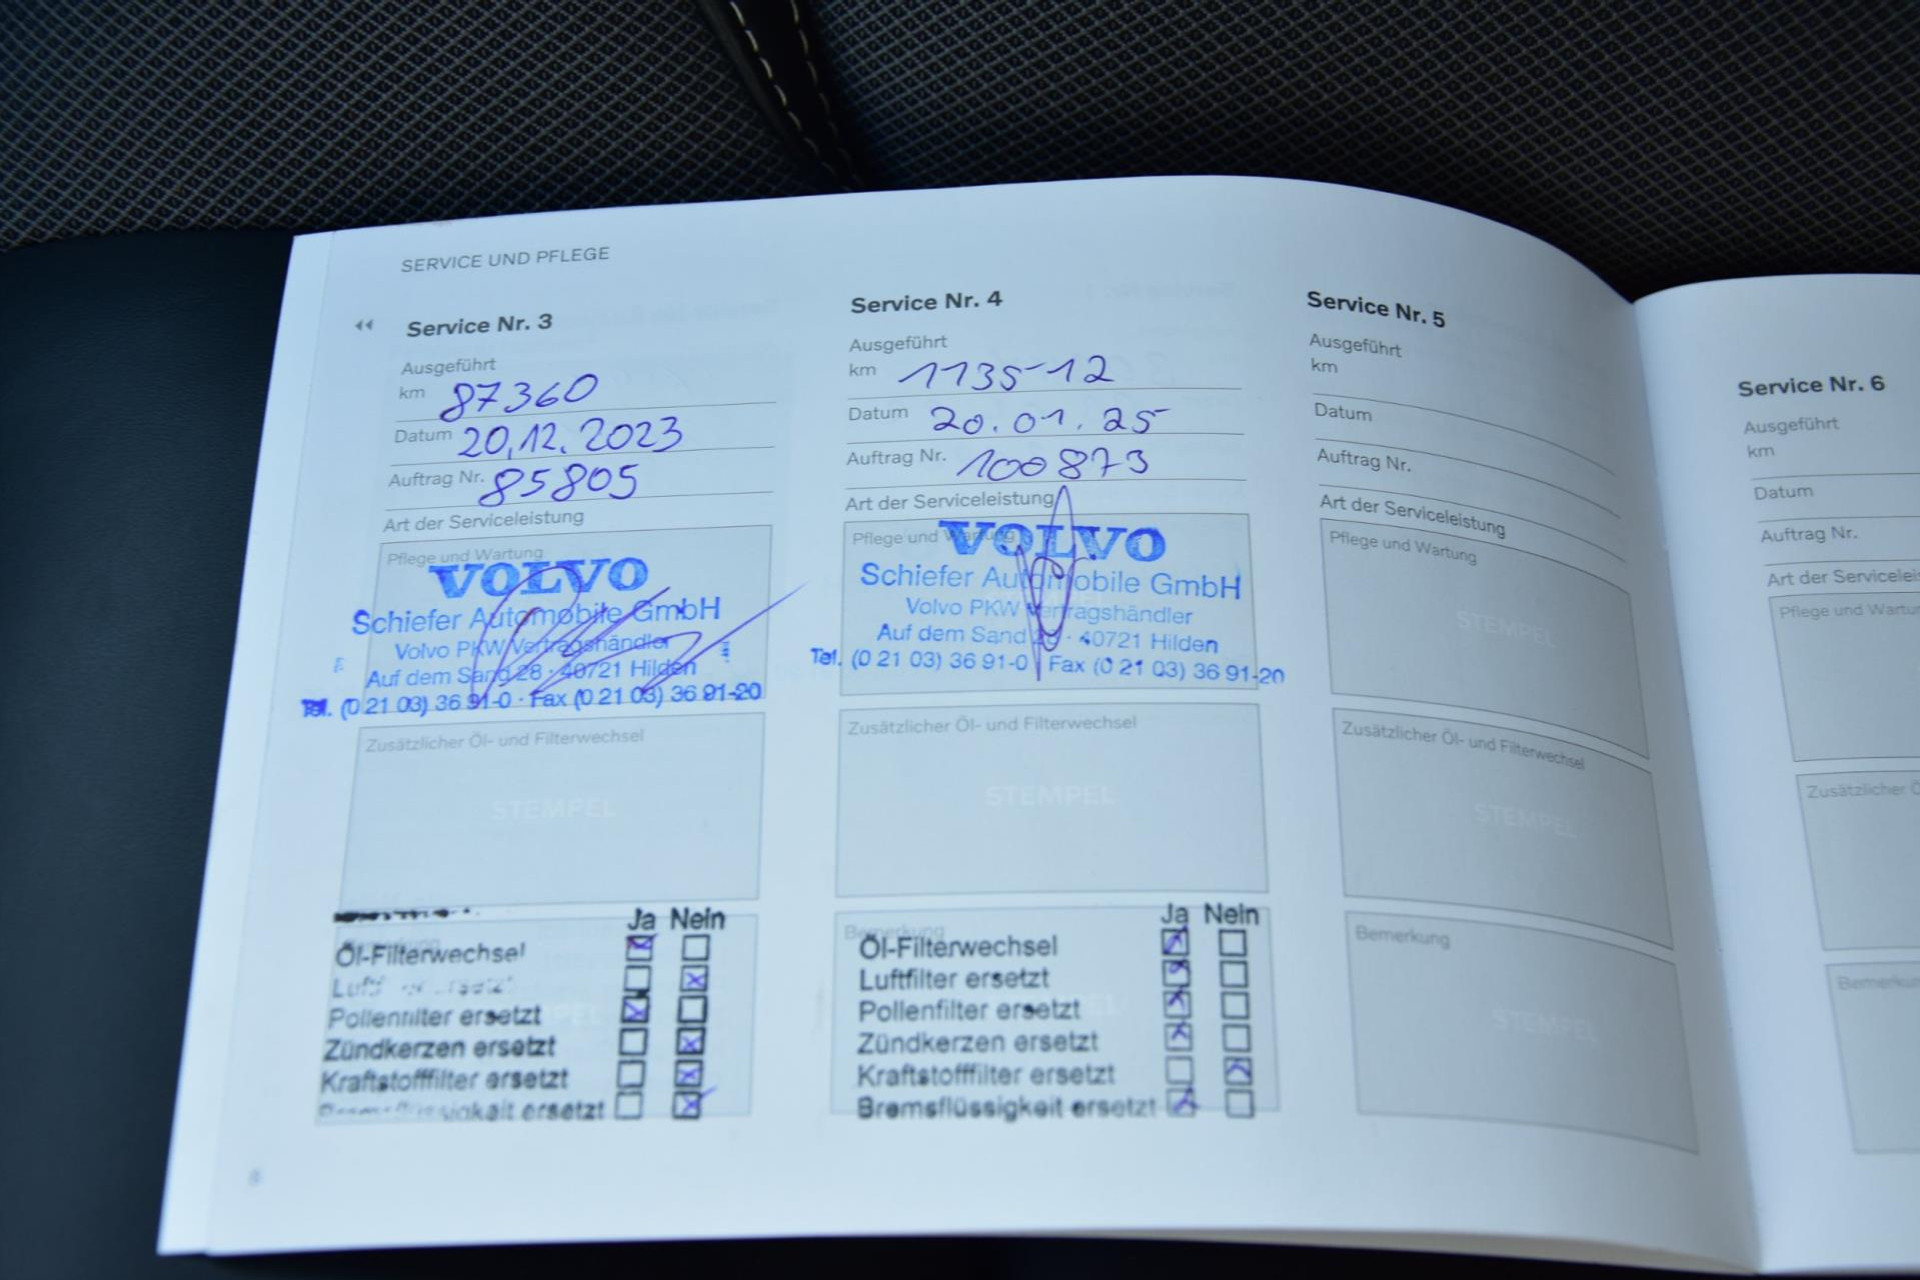 SERVICE UND PFLEGE
Service Nr. 3
Ausgeführt
km 87360
Datum 20.12.2023
Auftrag Nr. 85805
Art der Serviceleistung
Pflege und Wartung
VOLVO
Schiefer Automobile GmbH
Volvo PKW Vertragshändler
Auf dem Sand 28 · 40721 Hilden
Tel. (0 21 03) 36 91-0 · Fax (0 21 03) 36 91-20
Zusätzlicher Öl- und Filterwechsel
STEMPEL
Bemerkung
Ja Nein
Öl-Filterwechsel
Pollenfilter ersetzt
Zündkerzen ersetzt
Kraftstofffilter ersetzt
ersetzt
8
Service Nr. 4
Ausgeführt
km 113512
Datum 20.01.25
Auftrag Nr. 100873
Art der Serviceleistung
Pflege und Wartung
VOLVO
Schiefer Automobile GmbH
Volvo PKW Vertragshändler
Auf dem Sand 28 · 40721 Hilden
Tel. (0 21 03) 36 91-0 Fax (0 21 03) 36 91-20
Zusätzlicher Öl- und Filterwechsel
STEMPEL
Bemerkung
Ja Nein
Öl-Filterwechsel
Luftfilter ersetzt
Pollenfilter ersetzt
Zündkerzen ersetzt
Kraftstofffilter ersetzt
Bremsflüssigkeit ersetzt
Service Nr. 5
Ausgeführt
km
Datum
Auftrag Nr.
Art der Serviceleistung
Pflege und Wartung
STEMPEL
Zusätzlicher Öl- und Filterwechsel
STEMPEL
Bemerkung
STEMPEL
Service Nr. 6
Ausgeführt
km
Datum
Auftrag Nr.
Art der Servicelei
Pflege und Wartu
Zusätzlicher
Bemerku